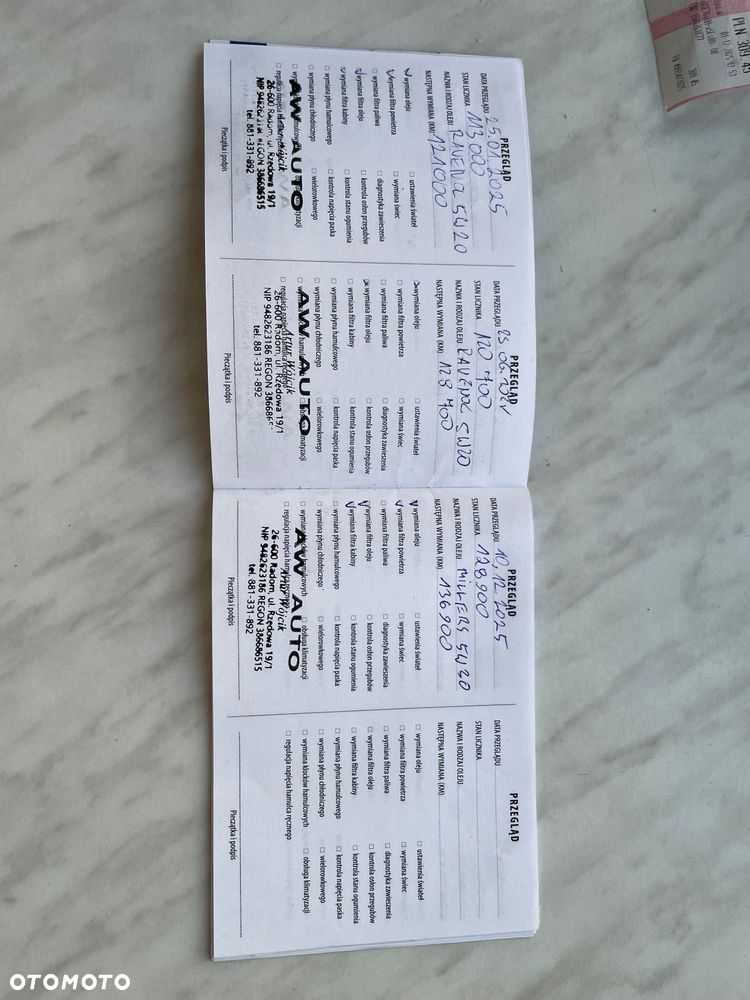 PRZEGLĄD
DATA PRZEGLĄDU 25.01.2025
STAN LICZNIKA 113000
NAZWA I RODZAJ OLEJU RAVENOL 5W20
NASTĘPNA WYMIANA (KM) 121000
wymiana oleju
ustawienia świateł
wymiana filtra powietrza
wymiana świec
wymiana filtra paliwa
diagnostyka zawieszenia
wymiana filtra oleju
kontrola osłon przegubów
wymiana filtra kabiny
kontrola stanu ogumienia
wymiana płynu hamulcowego
kontrola napięcia paska
wymiana płynu chłodniczego
wielorowkowego
AW AUTO
Artur Wójcik
26-600 Radom, ul. Rzędowa 19/1
NIP 9482623186 REGON 386686515
tel. 881-331-892
Pieczątka i podpis
PRZEGLĄD
DATA PRZEGLĄDU 25.06.
STAN LICZNIKA 120 700
NAZWA I RODZAJ OLEJU RAVENOL 5W20
NASTĘPNA WYMIANA (KM) 128 700
wymiana oleju
ustawienia świateł
wymiana filtra powietrza
wymiana świec
wymiana filtra paliwa
diagnostyka zawieszenia
wymiana filtra oleju
kontrola osłon przegubów
wymiana filtra kabiny
kontrola stanu ogumienia
wymiana płynu hamulcowego
kontrola napięcia paska
wymiana płynu chłodniczego
wielorowkowego
AW AUTO
Artur Wójcik
26-600 Radom, ul. Rzędowa 19/1
NIP 9482623186 REGON 3866865
tel. 881-331-892
Pieczątka i podpis
PRZEGLĄD
DATA PRZEGLĄDU 10.12.2025
STAN LICZNIKA 128900
NAZWA I RODZAJ OLEJU MILLERS 5W30
NASTĘPNA WYMIANA (KM) 136900
wymiana oleju
ustawienia świateł
wymiana filtra powietrza
wymiana świec
wymiana filtra paliwa
diagnostyka zawieszenia
wymiana filtra oleju
kontrola osłon przegubów
wymiana filtra kabiny
kontrola stanu ogumienia
wymiana płynu hamulcowego
kontrola napięcia paska
wymiana płynu chłodniczego
wielorowkowego
obsługa klimatyzacji
AW AUTO
Artur Wójcik
26-600 Radom, ul. Rzędowa 19/1
NIP 9482623186 REGON 386686515
tel. 881-331-892
Pieczątka i podpis
PRZEGLĄD
DATA PRZEGLĄDU
STAN LICZNIKA
NAZWA I RODZAJ OLEJU
NASTĘPNA WYMIANA (KM)
wymiana oleju
ustawienia świateł
wymiana filtra powietrza
wymiana świec
wymiana filtra paliwa
diagnostyka zawieszenia
wymiana filtra oleju
kontrola osłon przegubów
wymiana filtra kabiny
kontrola stanu ogumienia
wymiana płynu hamulcowego
kontrola napięcia paska
wymiana płynu chłodniczego
wielorowkowego
wymiana klocków hamulcowych
obsługa klimatyzacji
regulacja napięcia hamulca ręcznego
Pieczątka i podpis
PLN 309 45
OTOMOTO